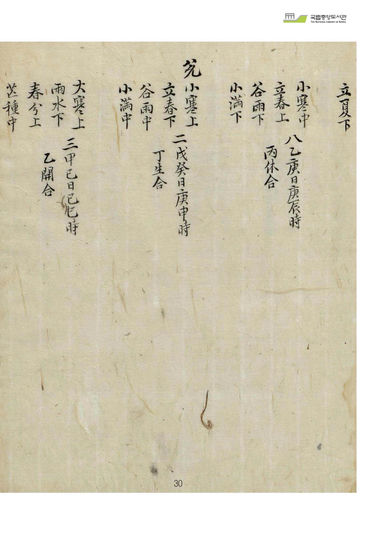 국립중앙도서관
立夏下
小寒中
立春上
八乙庚日庚辰時
丙休合
谷雨下
小滿下
兊
小寒上
立春下
二戊癸日庚申時
丁生合
谷雨中
小滿中
大寒上
雨水下
三甲己日己巳時
乙開合
春分上
芒種中
30